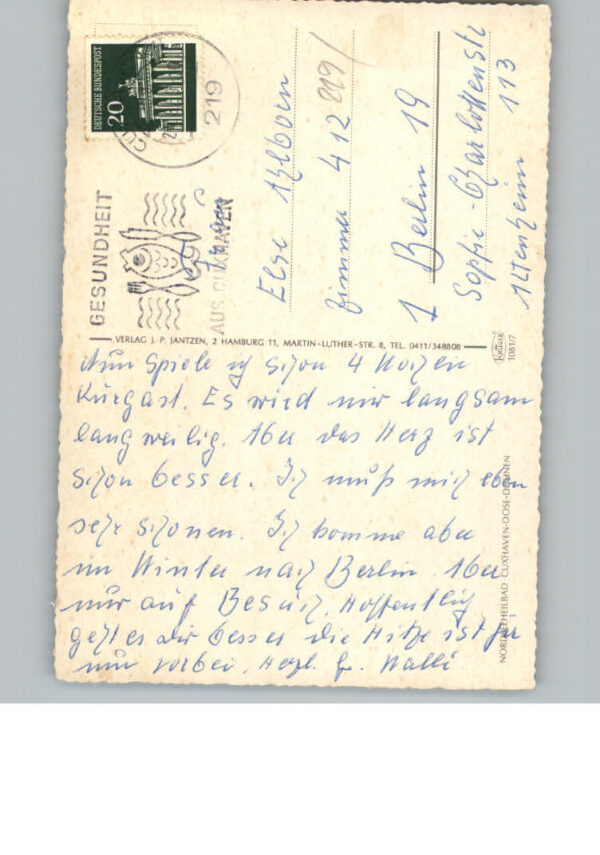 DEUTSCHE BUNDESPOST
20
219
GESUNDHEIT
AUS CUXHAVEN
Else Ahlborn
Zimmer 412 219/
1 Berlin 19
Sophie-Charlottenstr
113
Altenheim
VERLAG J. P. JANTZEN, 2 HAMBURG 11, MARTIN-LUTHER-STR. 8, TEL. 0411/348808
KRÜGER
1081/7
NORDSEEHEILBAD CUXHAVEN-DOSE-DUHNEN
Nun Spiele ich schon 4 Wochen
Kurgast. Es wird mir langsam
langweilig. Aber das Herz ist
schon besser. Ich muß mich eben
sehr schonen. Ich komme aber
im Winter nach Berlin. Aber
nur auf Besuch. Hoffentlich
geht es Dir besser die Hitze ist ja
nun vorbei. Herzl. Gr. Walli